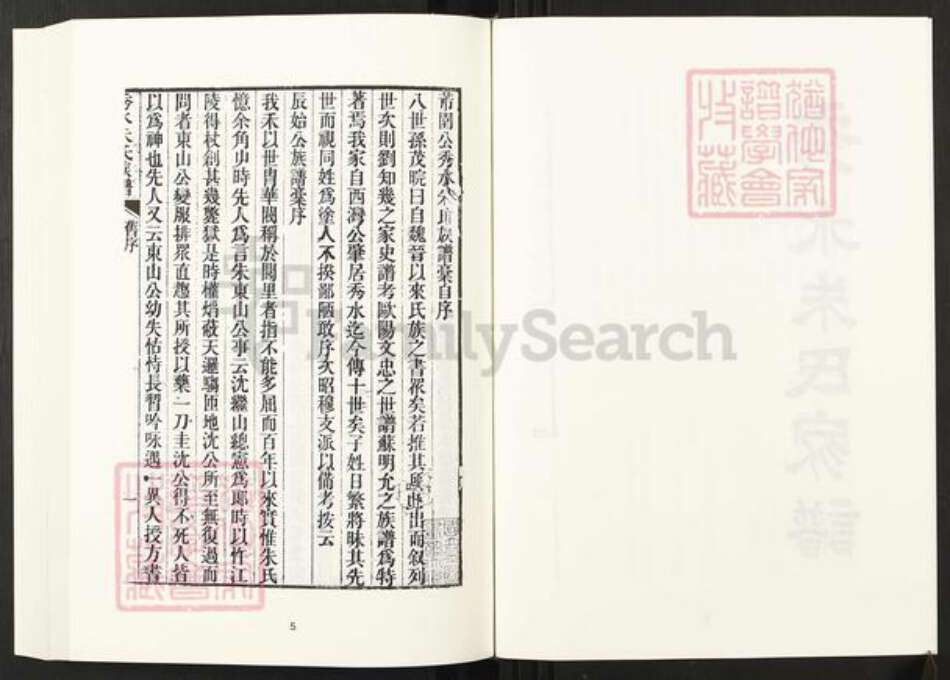 莆園公秀水朱氏族譜稾自序
八世孫茂晥曰自魏晉以來氏族之書眾矣若推其所出而敘列
世次則劉知幾之家史譜考歐陽文忠之世譜蘇明允之族譜爲特
著焉我家自西灣公肇居秀水迄今傳十世矣子姓日繁將昧其先
世而視同姓爲徐人不揆鄙陋敢序次昭穆支派以備考按云
辰始公族譜稾序
我禾以世冑華閥稱於閭里者指不能多屈而百年以來實惟朱氏
憶余角丱時先人爲言朱東山公事云沈繼山總憲爲郎時以忤江
陵得杖創甚幾斃獄是時權焰蔽天邏騶匝地沈公所至無復過而
問者東山公變服排眾直趨其所授以藥一刀圭沈公得不死人皆
以爲神也先人又云東山公幼失怙恃長習吟咏遇一異人授方書
秀水朱氏家譜 舊序 一
5
FamilySearch
譜學會
收藏
秀水朱氏家譜